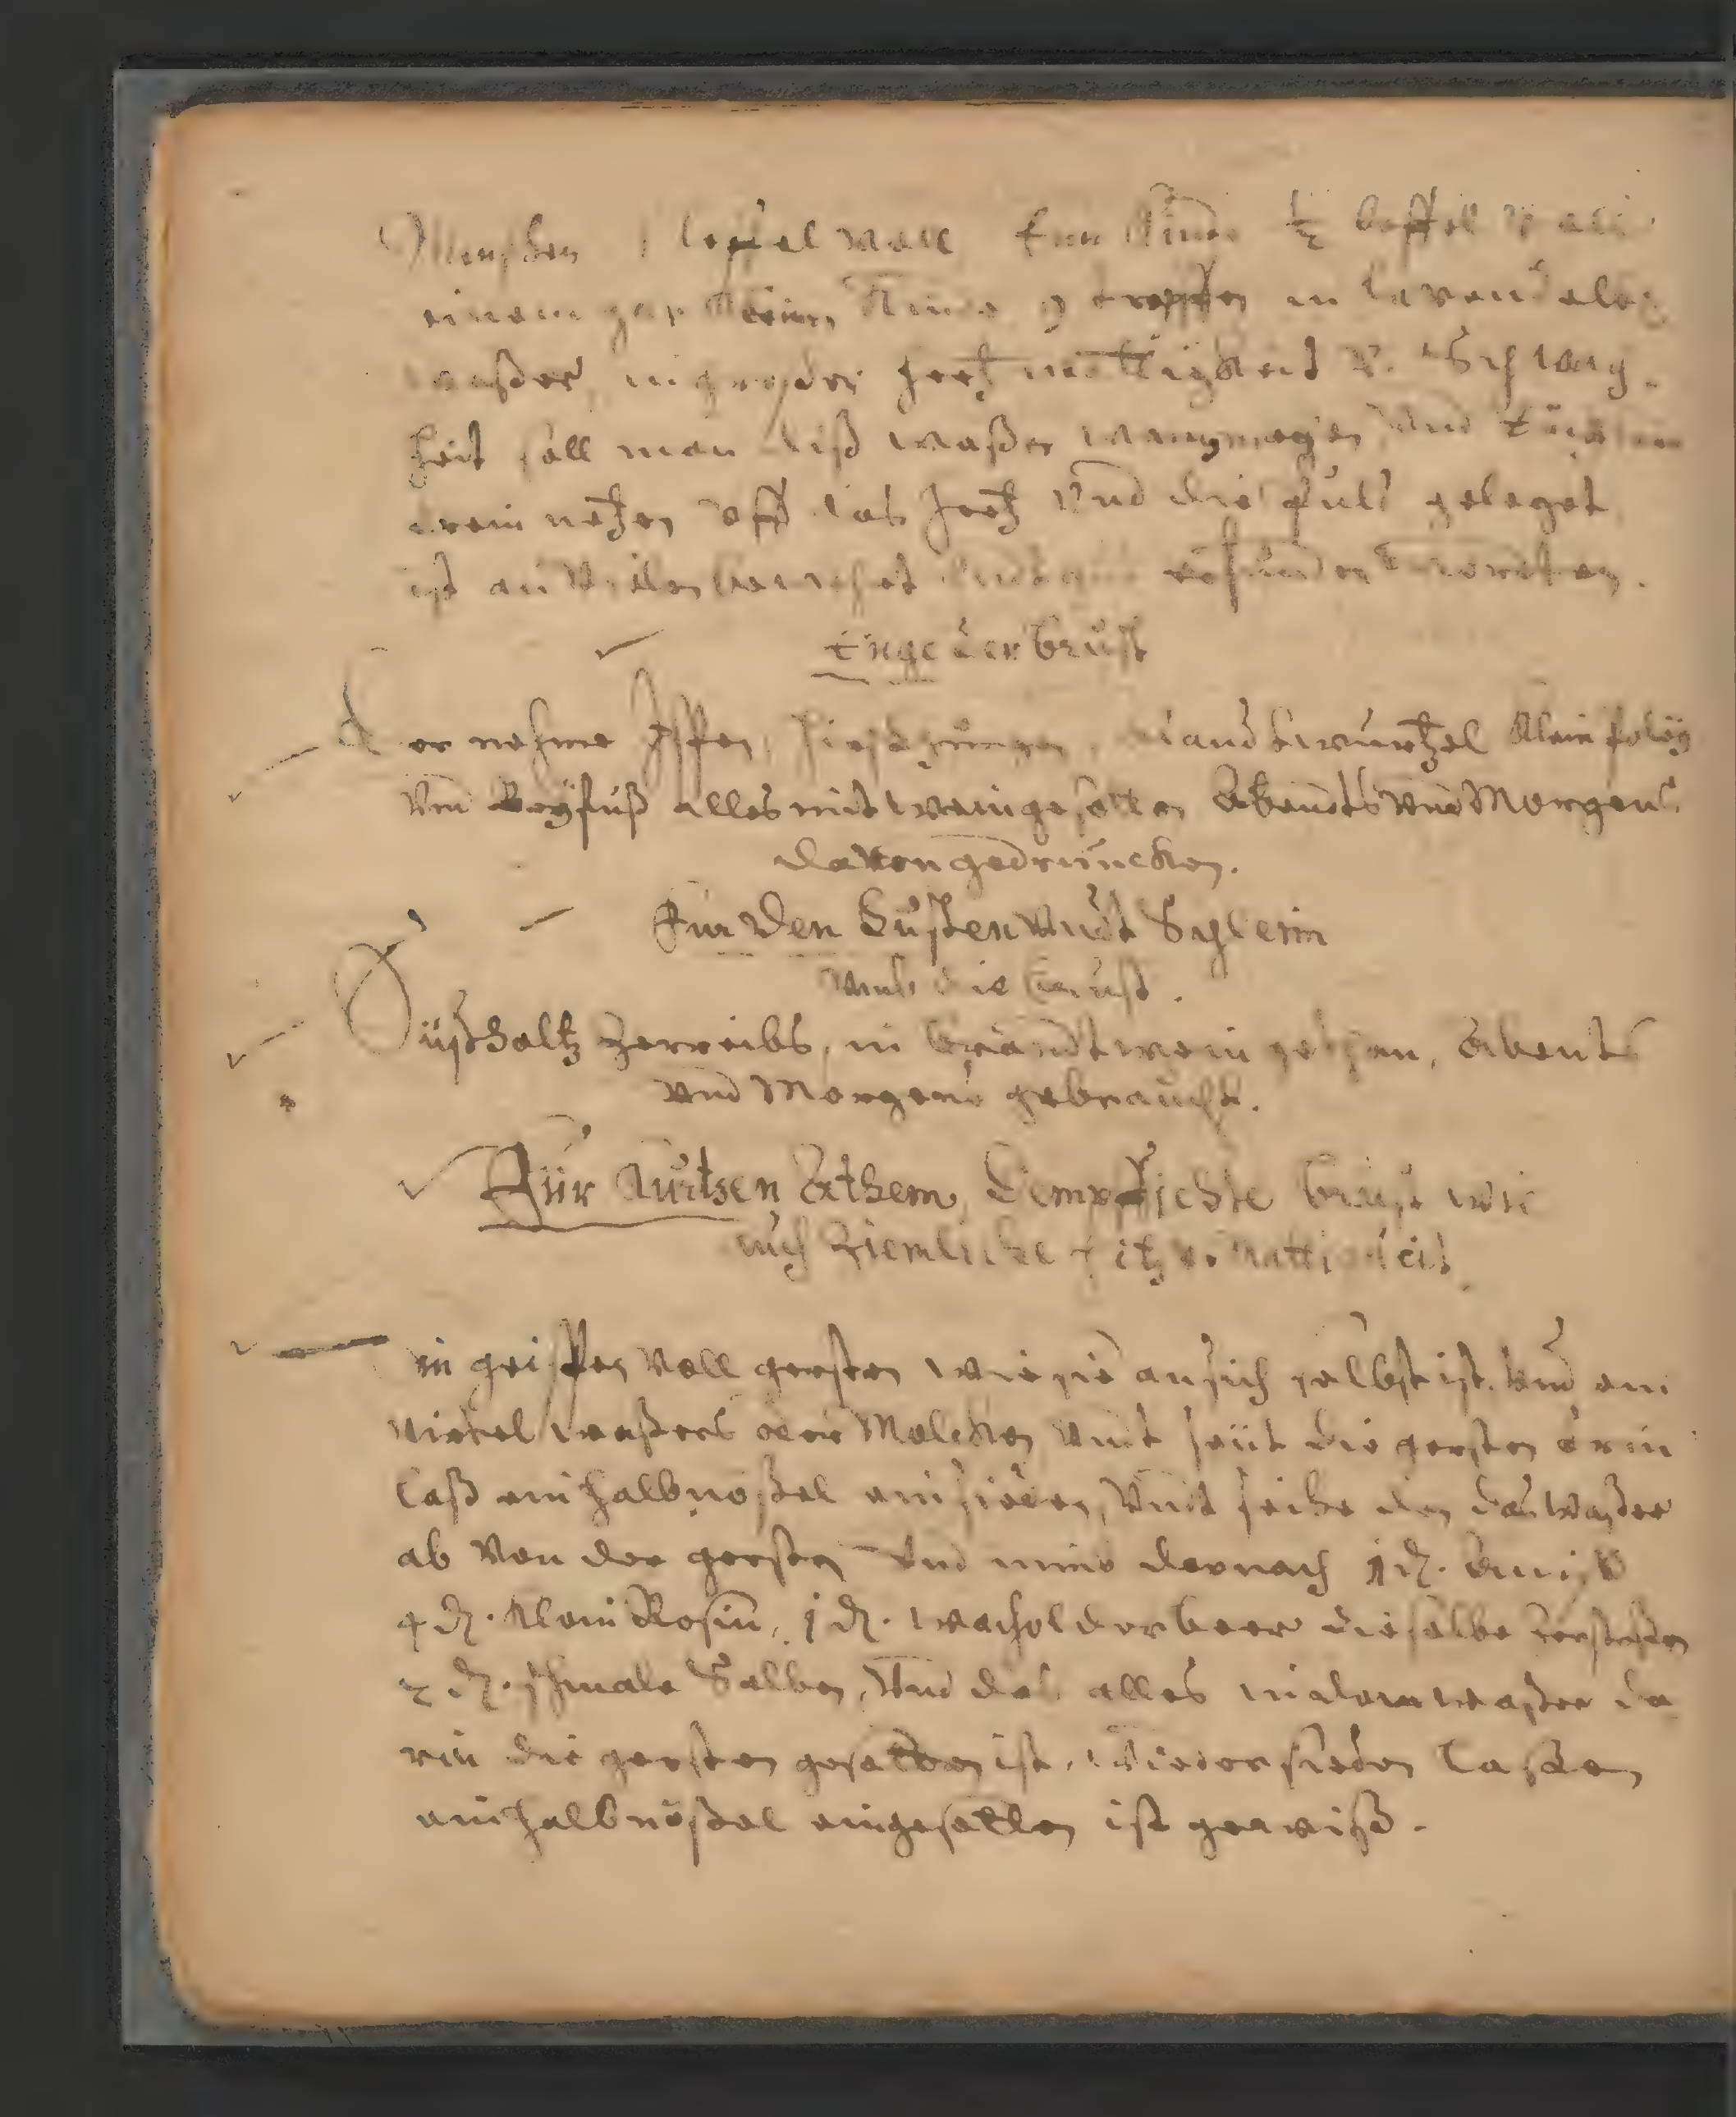 Menschen 1 loeffel voll Ein Kinde ½ loeffel voll
einem gar kleinen Kinde 9 tropffen in lavendelen
waßer, in großer hertz mattigkeit v. Schwag-
heit soll man diß waßer warm machen vnd tüchlein
drein netzen vff das hertz vnd die puls geleget
ist an vielen versuchet vndt gut erfunden worden.
Enge der brust
Der nehme Isopen, hirschzungen, alandtwurtzel klein poley
vnd Beyfuß alles mit wein gesotten Abendts vnd Morgens
davon gedruncken.
Fur den Husten vndt Schleim
vmb die brust.
Süßholtz zerreibs, in brandtwein gethan, Abents
vnd Morgens gebraucht.
Für kurtzen Athem, dempffichte brust wie
auch ziemliche hitz v. mattigkeit
ein griffen voll gersten wie sie an sich selbst ist. vnd ein
virtel waßers oder Molcken vndt seüt die gersten drin
laß ein halb nößel einsieden, vndt seihe den das waßer
ab von der gersten vnd nim darnach 1 ℔.
4 ℔. klein Rosin, 1 ℔. wacholderbeer dieselbe zerstoßen
2 ℔. schmale Salben, vnd das alles in dem waßer da
rin die gersten gesotten ist, wieder sieden laßen
ein halb nößel eingesotten ist gewiß.